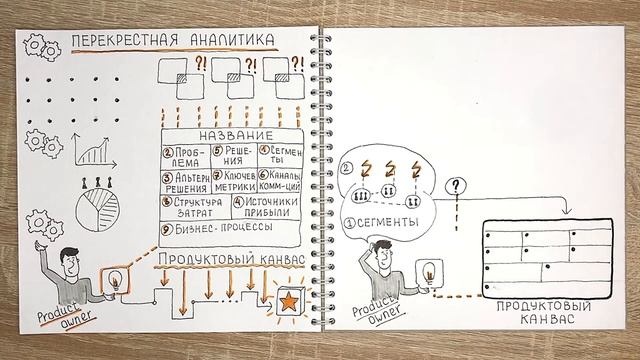 ПЕРЕКРЕСТНАЯ АНАЛИТИКА
?! ?! ?!
НАЗВАНИЕ
② ПРОБ-
ЛЕМА
⑤ РЕШЕ-
НИЯ
① СЕГМЕН
ТЫ
③ АЛЬТЕРН
РЕШЕНИЯ
⑦ КЛЮЧЕВ
МЕТРИКИ
⑥ КАНАЛЫ
КОММ-ЦИЙ
⑧ СТРУКТУРА
ЗАТРАТ
④ ИСТОЧНИКИ
ПРИБЫЛИ
⑨ БИЗНЕС-ПРОЦЕССЫ
ПРОДУКТОВЫЙ КАНВАС
Product
owner
②
?
① СЕГМЕНТЫ
Product
owner
ПРОДУКТОВЫЙ
КАНВАС